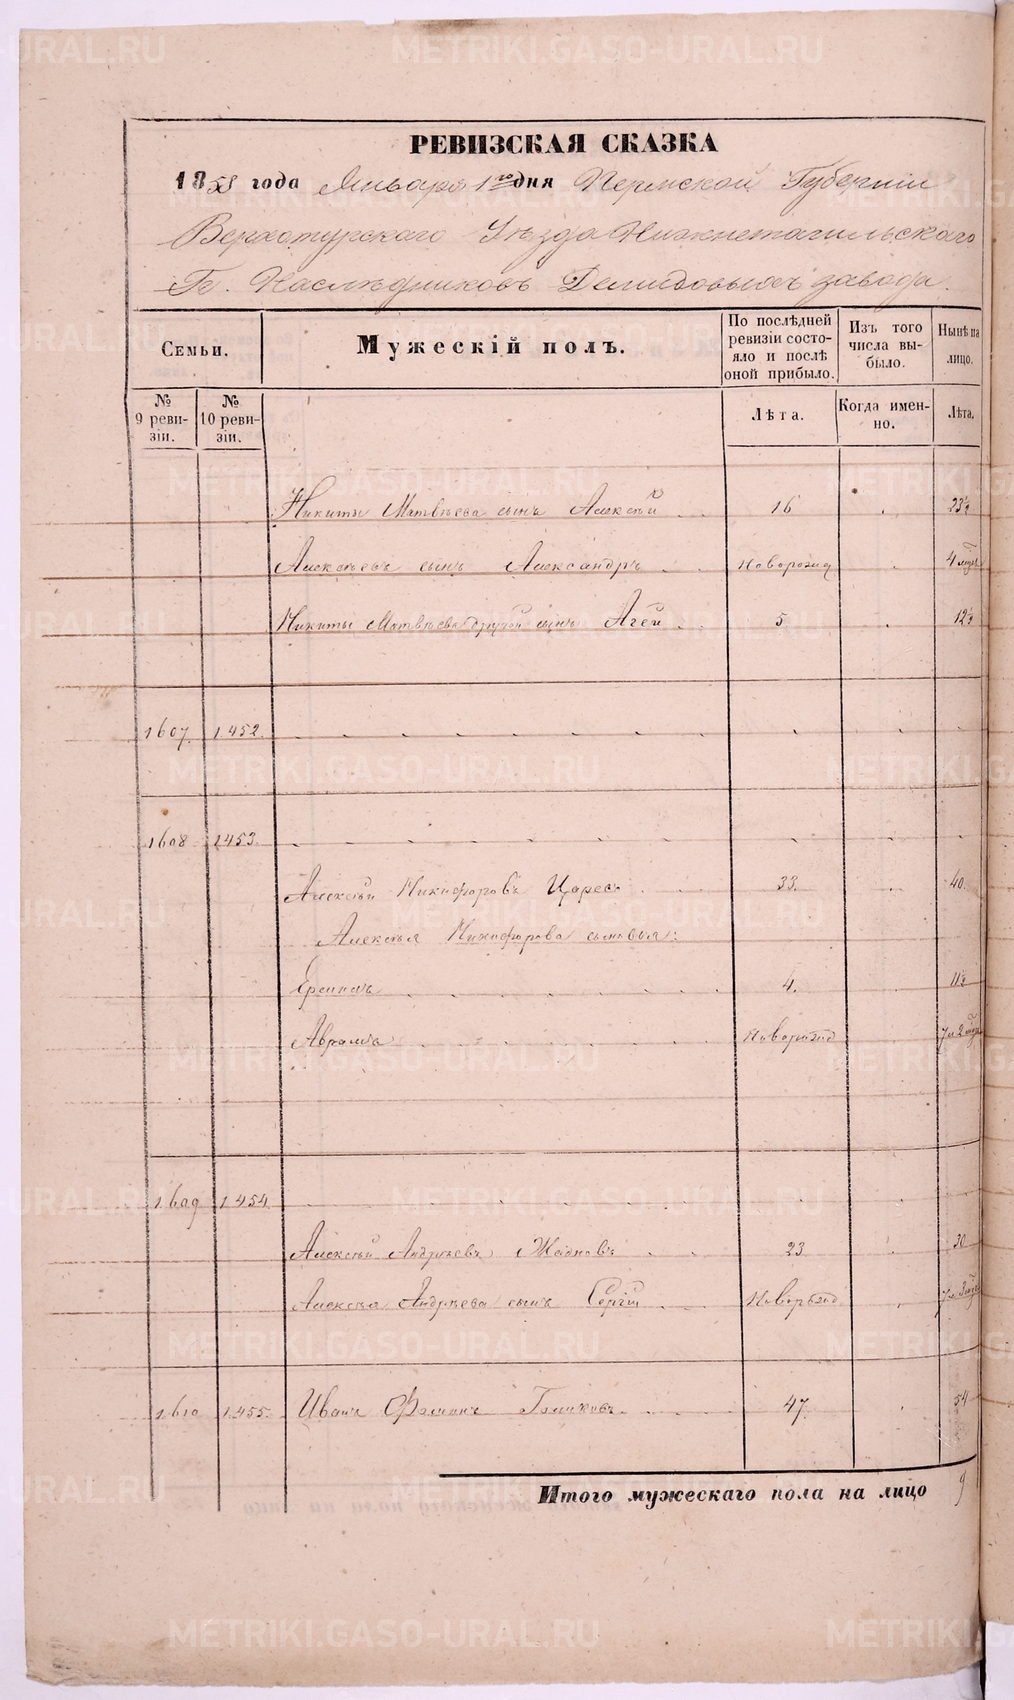 РЕВИЗСКАЯ СКАЗКА
1858 года Января 1го дня Пермской Губернии
Верхотурскаго Уѣзда Нижнетагильскаго
Гг. Наслѣдниковъ Демидовыхъ завода.
Семьи. Мужескій полъ. По послѣдней ревизіи состояло и послѣ оной прибыло. Изъ того числа выбыло. Нынѣ на лицо.
№ 9 ревизіи. № 10 ревизіи. Лѣта. Когда именно. Лѣта.
Никиты Матвѣева сынъ Алексѣй 16 23½
Алексѣевъ сынъ Александръ новорожд 4 мѣс
Никиты Матвѣева другой сынъ Агей 5 12½
1607. 1452.
1608 1453.
Алексѣй Никифоровъ 33. 40.
Алексѣя Никифорова сыновья:
4. 11½
Абрамъ Новорожд
1609 1454
Алексѣй Андреевъ 23 30
Алексѣя Андреева сынъ Сергій Новорожд
1610 1455. Иванъ Голиковъ 47. 54
Итого мужескаго пола на лицо 9
METRIKI.GASO-URAL.RU